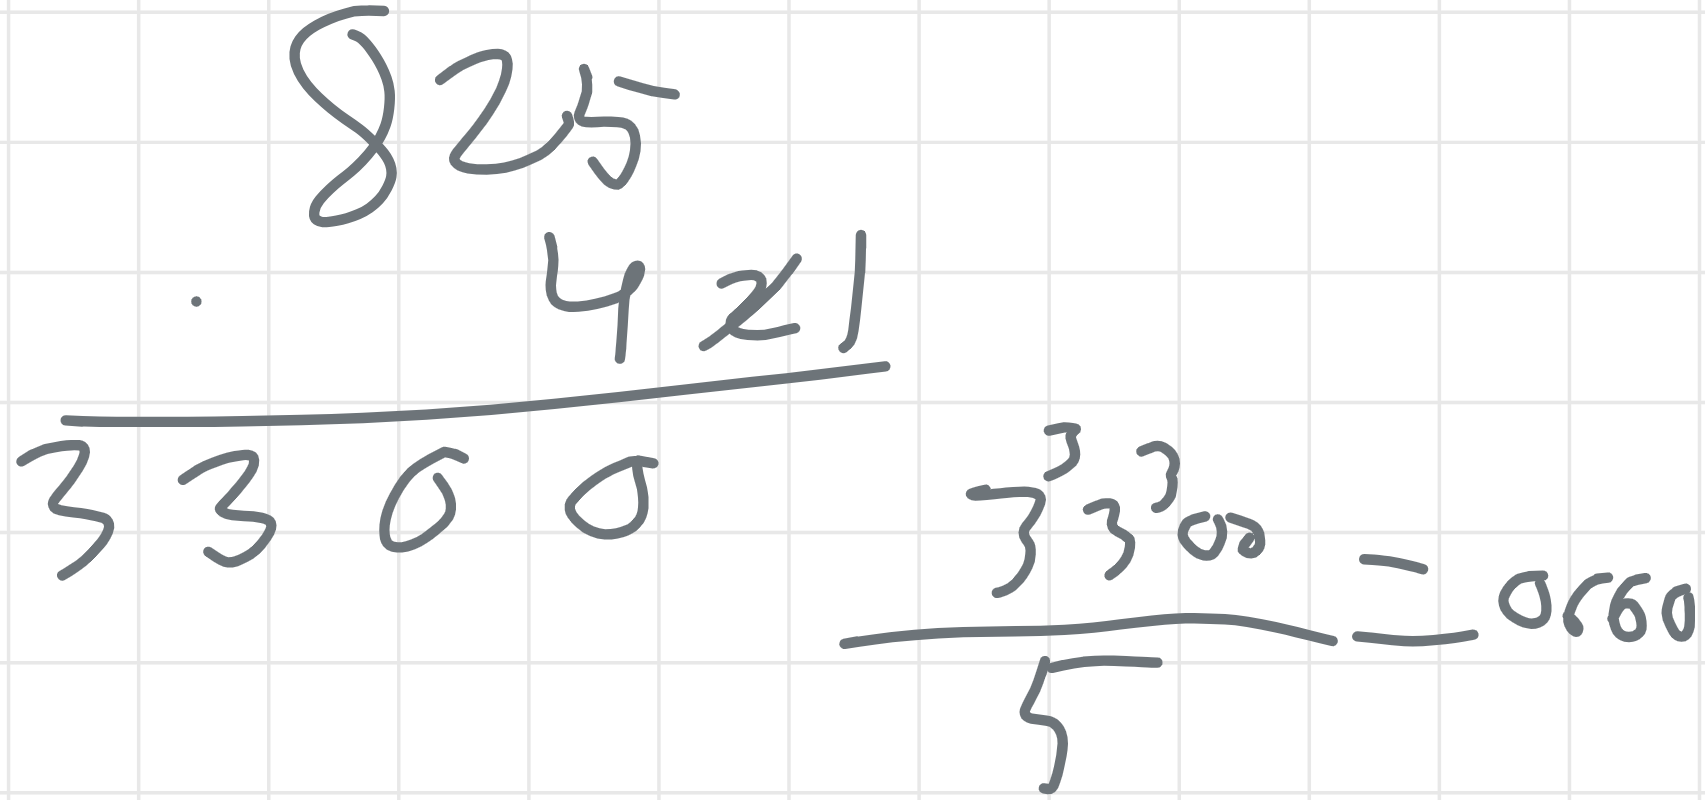 825
4 2 1
3 3 0 0
3 3 3 3 00 = 0660
5